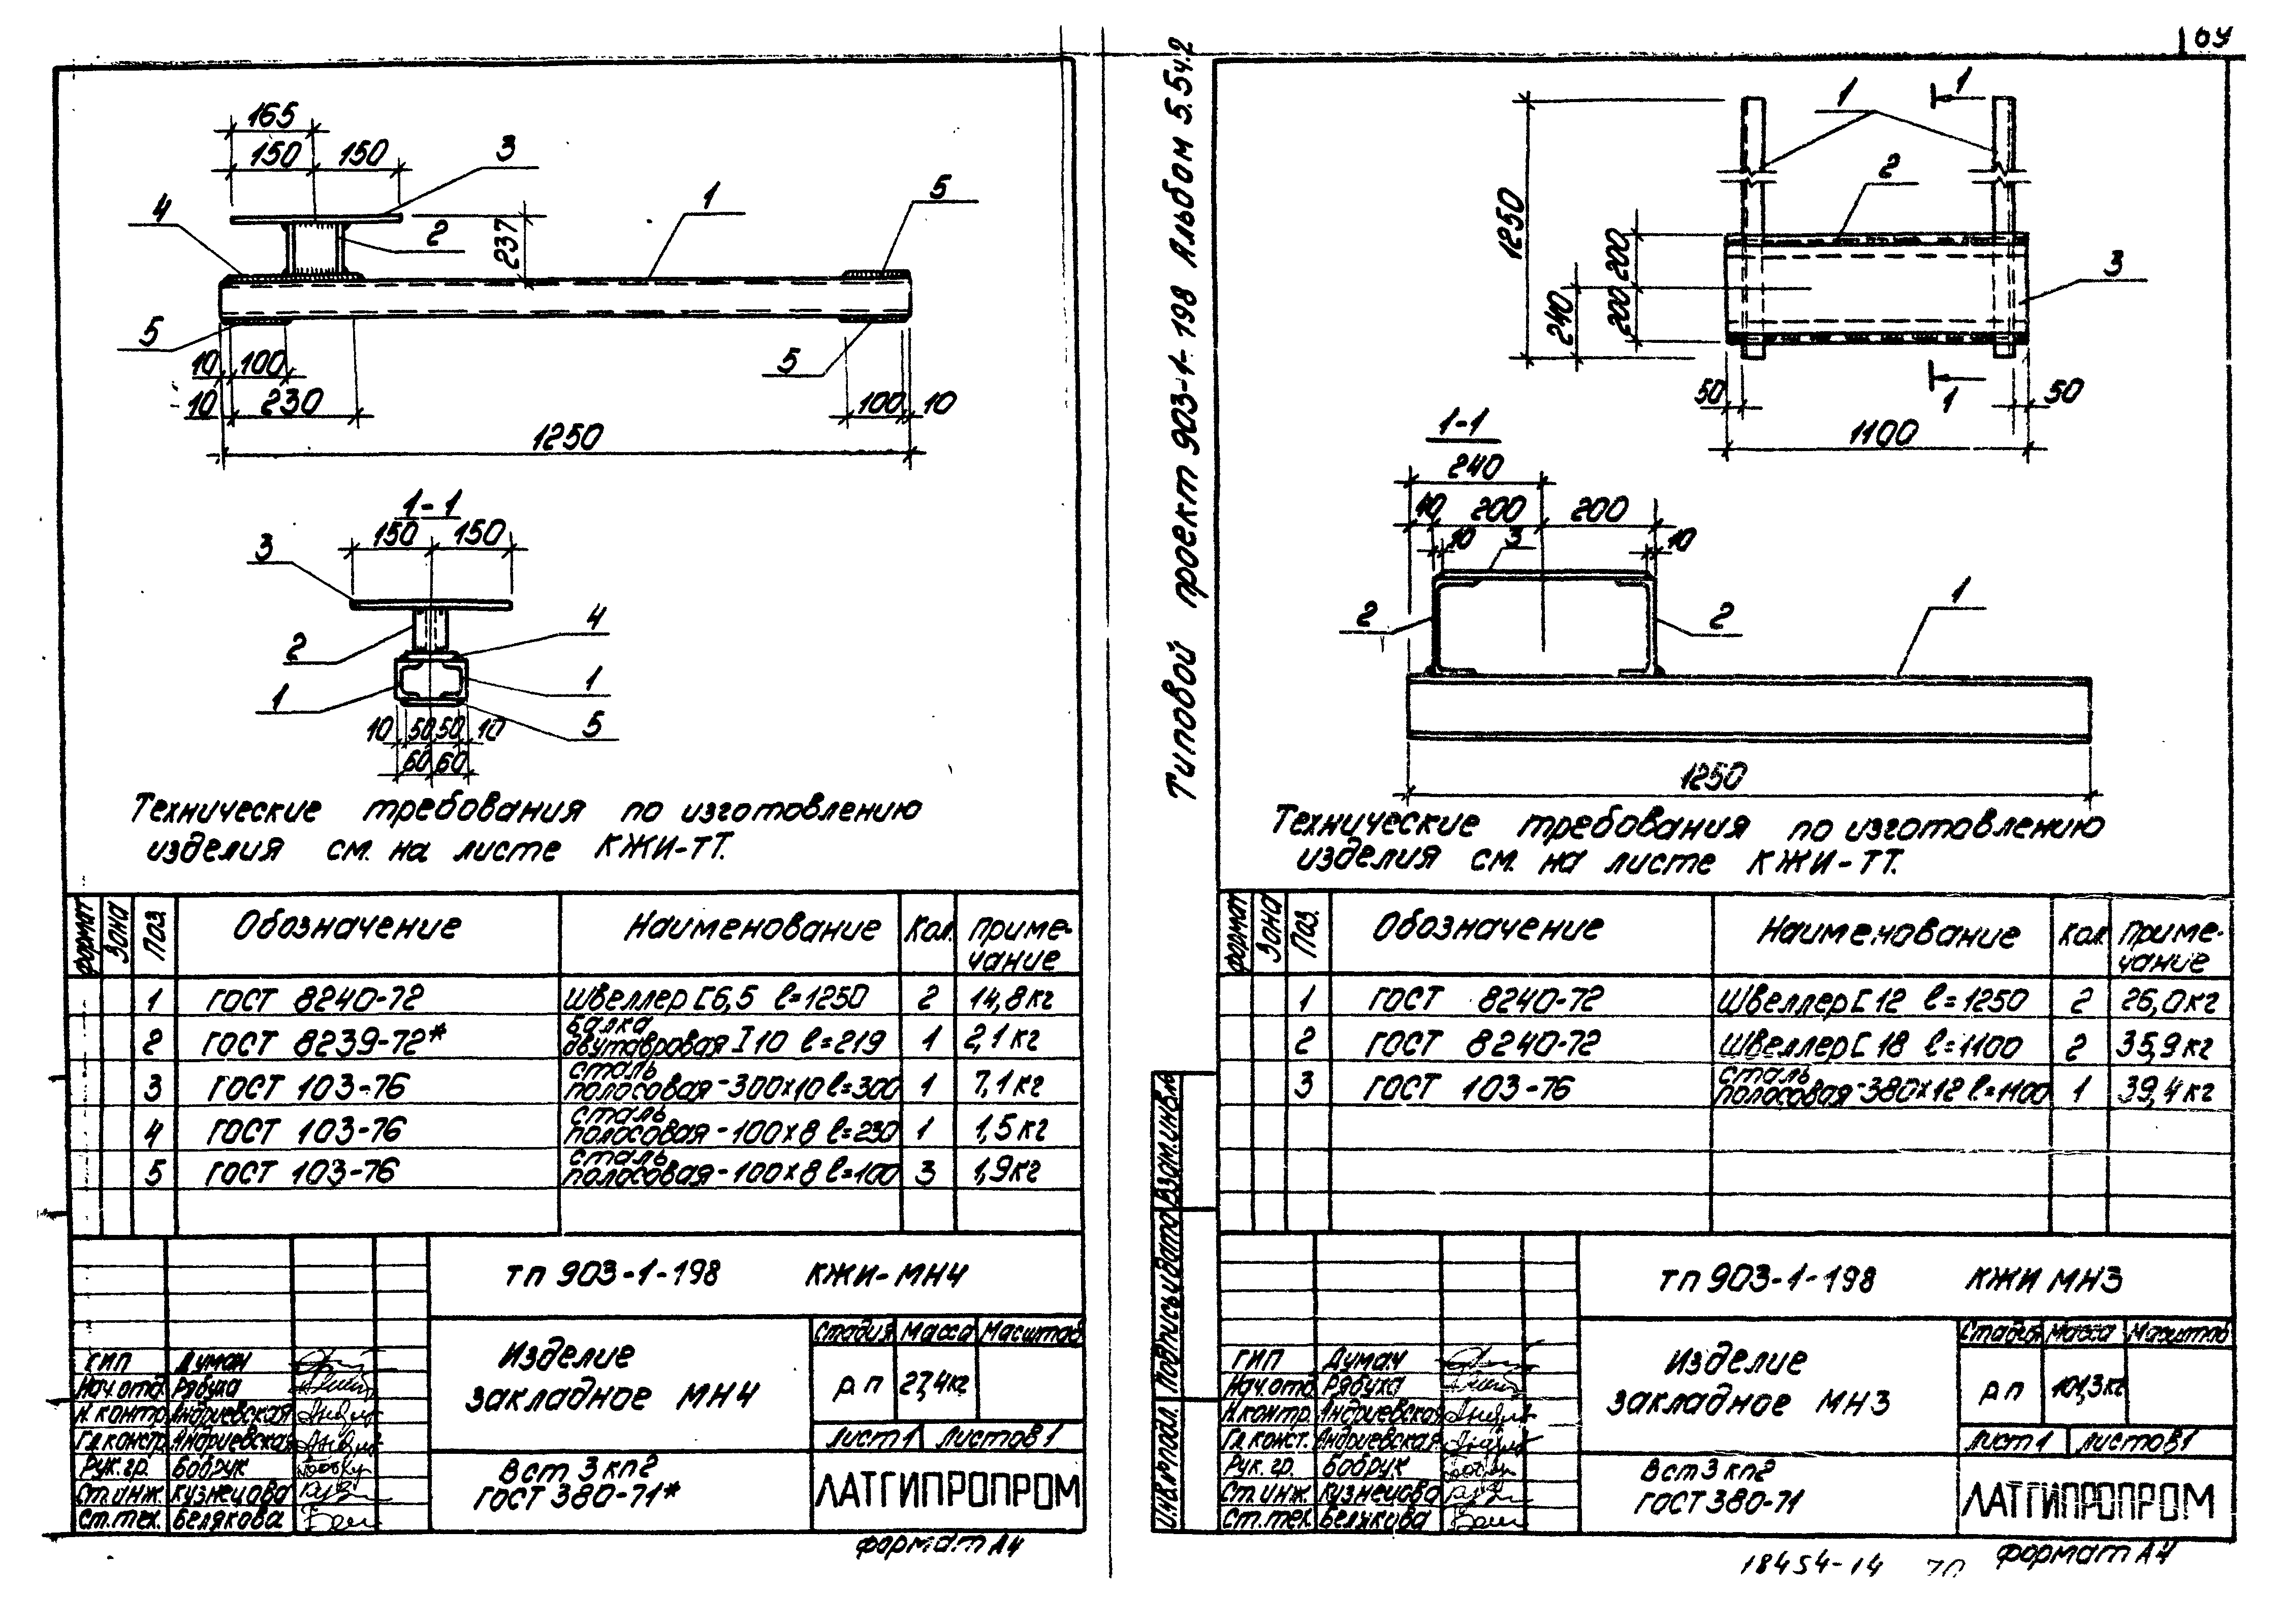 165
150 150
3
4
2
237
1
5
5
5
10 100
10 230
100 10
1250
1-1
150 150
3
4
2
1
1
5
10 50 50 10
60 60
Технические требования по изготовлению
изделия см. на листе КЖИ-ТТ.
Формат Зона Поз. Обозначение Наименование Кол. Приме-
чание
1 ГОСТ 8240-72 Швеллер [6,5 ℓ=1250 2 14,8кг
2 ГОСТ 8239-72* Балка
двутавровая I10 ℓ=219 1 2,1кг
3 ГОСТ 103-76 Сталь
полосовая-300×10 ℓ=300 1 7,1кг
4 ГОСТ 103-76 Сталь
полосовая-100×8 ℓ=230 1 1,5кг
5 ГОСТ 103-76 Сталь
полосовая-100×8 ℓ=100 3 1,9кг
ТП 903-1-198 КЖИ-МН4
Изделие
закладное МН4
Стадия Масса Масштаб
РП 27,4кг
Лист 1 Листов 1
ГИП Думан
Нач.отд. Рябуха
Н.контр. Андриевская
Гл.констр. Андриевская
Рук.гр. Бобрук
Ст.инж. Кузнецова
Ст.тех. Белякова
Вст3кп2
ГОСТ 380-71*
ЛАТГИПРОПРОМ
Формат А4
Типовой проект 903-1-198 Альбом 5.5ч.2
1
1
2
3
1250
240
200 200
1
50 50
1100
1-1
240
40 200 200
10 3 10
2
2
1
1250
Технические требования по изготовлению
изделия см. на листе КЖИ-ТТ.
Формат Зона Поз. Обозначение Наименование Кол. Приме-
чание
1 ГОСТ 8240-72 Швеллер [12 ℓ=1250 2 26,0кг
2 ГОСТ 8240-72 Швеллер [18 ℓ=1100 2 35,9кг
3 ГОСТ 103-76 Сталь
полосовая-380×12 ℓ=1100 1 39,4кг
Взам.инв.№
Подпись и дата
Инв.№ подл.
ТП 903-1-198 КЖИ МН3
Изделие
закладное МН3
Стадия Масса Масштаб
РП 101,3кг
Лист 1 Листов 1
ГИП Думан
Нач.отд. Рябуха
Н.контр. Андриевская
Гл.конст. Андриевская
Рук.гр. Бобрук
Ст.инж. Кузнецова
Ст.тех. Белякова
Вст3кп2
ГОСТ 380-71
ЛАТГИПРОПРОМ
18454-14 70 Формат А4